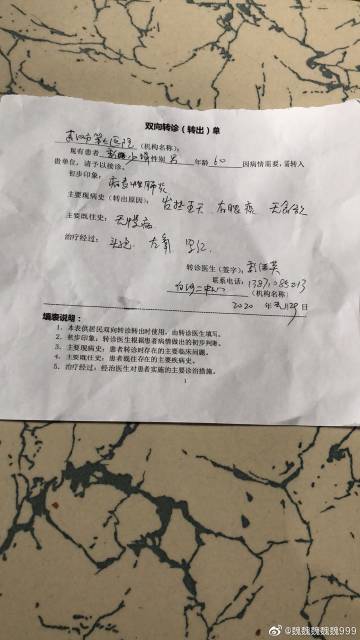 双向转诊（转出）单
武汉市第七医院（机构名称）：
现有患者 性别 男 年龄 60 因病情需要，需转入
贵单位，请予以接诊。
初步印象：
病毒性肺炎
主要现病史（转出原因）： 发热五天
主要既往史： 无慢病
治疗经过： 头孢
转诊医生（签字）：
联系电话：
（机构名称）
2020 年 月 29 日
填表说明：
1. 本表供居民双向转诊转出时使用，由转诊医生填写。
2. 初步印象：转诊医生根据患者病情做出的初步判断。
3. 主要现病史：患者转诊时存在的主要临床问题。
4. 主要既往史：患者既往存在的主要疾病史。
5. 治疗经过：经治医生对患者实施的主要诊治措施。
1
@魏魏魏魏魏999